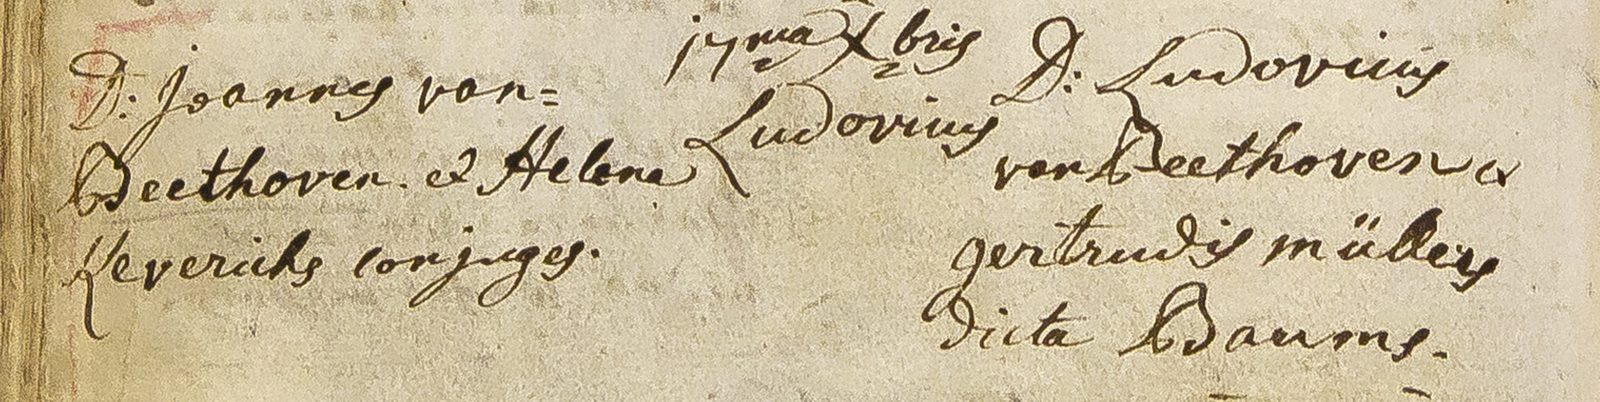 D: joannes van=
Beethoven. & Helena
Keverichs conjuges.
17ma Xbris
Ludovicus
D: Ludovicus
van Beethoven &
gertrudis müllers
dicta Baums.